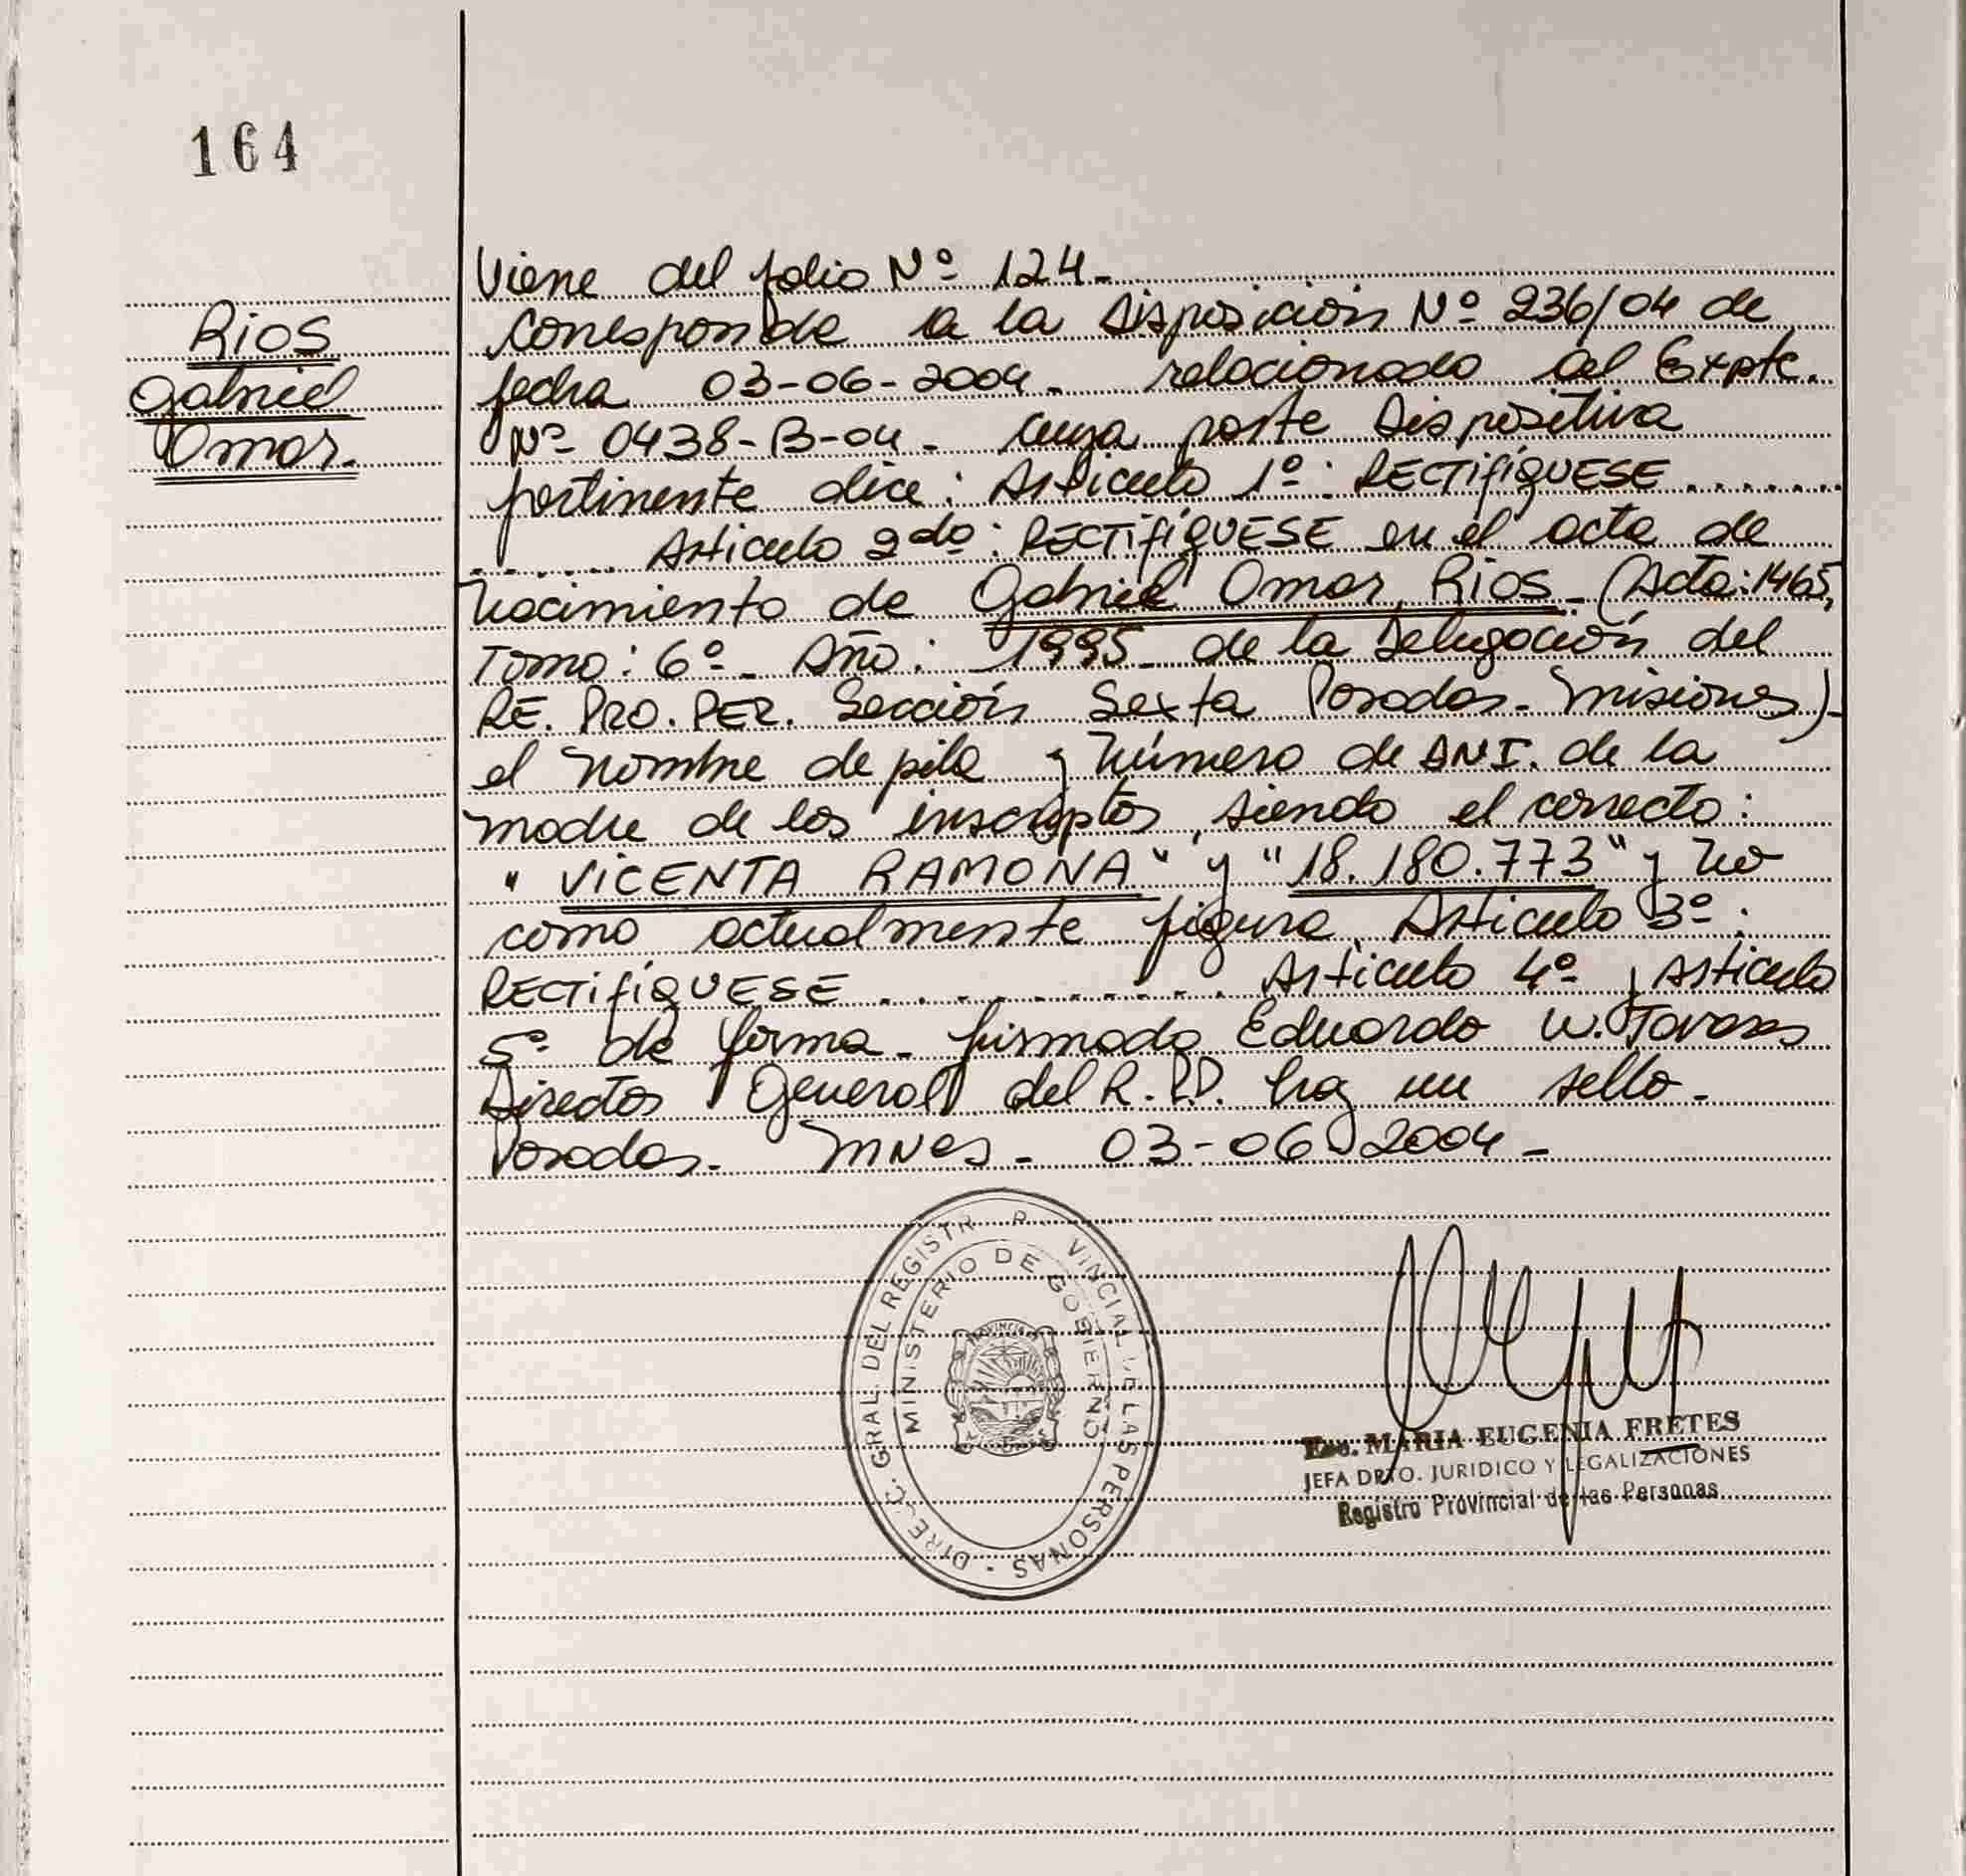 164
Rios
Gabriel
Omar.
Viene del folio Nº 124-
corresponde a la Disposición Nº 236/04 de
fecha 03-06-2004- relacionado al Expte.
Nº 0438-B-04- cuya parte Dispositiva
pertinente dice: Articulo 1º: RECTIFÍQUESE ........
...... Articulo 2do: RECTIFÍQUESE en el acta de
Nacimiento de Gabriel Omar Rios- (Acta: 1465,
Tomo: 6º- Año: 1995- de la Delegación del
RE. PRO. PER. Sección Sexta Posadas- Misiones)-
el nombre de pila y número de DNI. de la
madre de los inscriptos, siendo el correcto:
"VICENTA RAMONA" y "18.180.773" y no
como actualmente figura. Articulo 3º:
RECTIFÍQUESE .......... Articulo 4º y Articulo
5º de forma- firmado Eduardo W. Tavares
Director General del R.P.P. hay un sello-
Posadas- Mnes- 03-06-2004-
DIREC. GRAL. DEL REGISTR P VINCIAL DE LAS PERSONAS -
MINISTERIO DE GOBIERNO
Esc. MARIA EUGENIA FRETES
JEFA DPTO. JURIDICO Y LEGALIZACIONES
Registro Provincial de las Personas